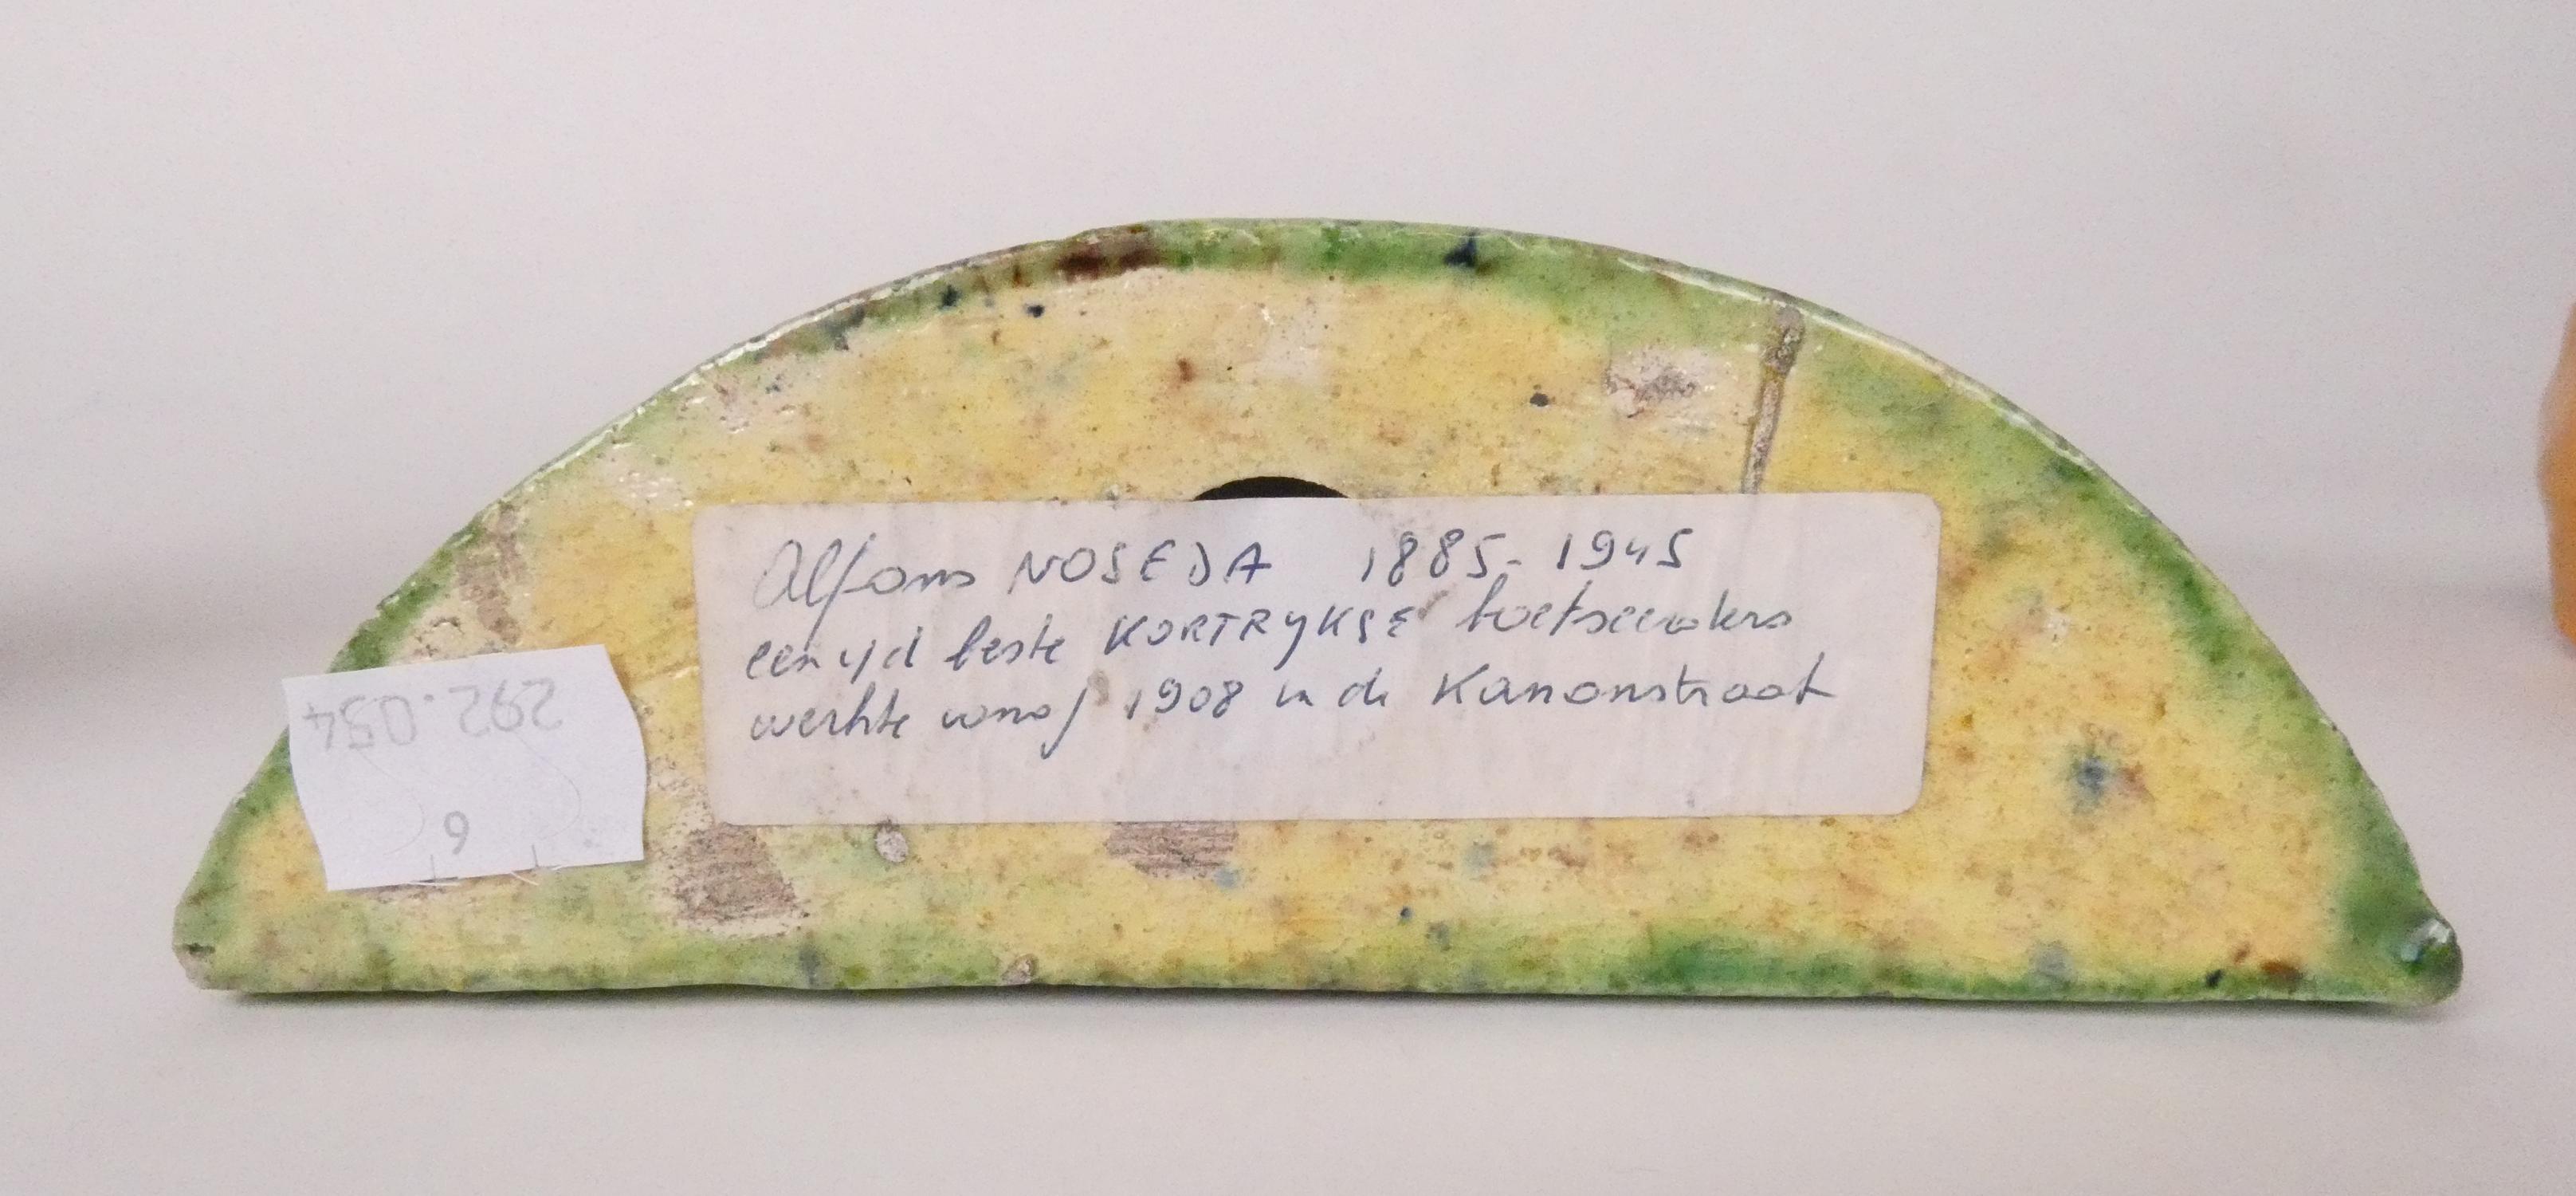 Alfons NOSEDA 1885-1945
een vd beste KORTRYKSE boetseerders
werkte vanaf 1908 in de Kanonstraat
292.054
6